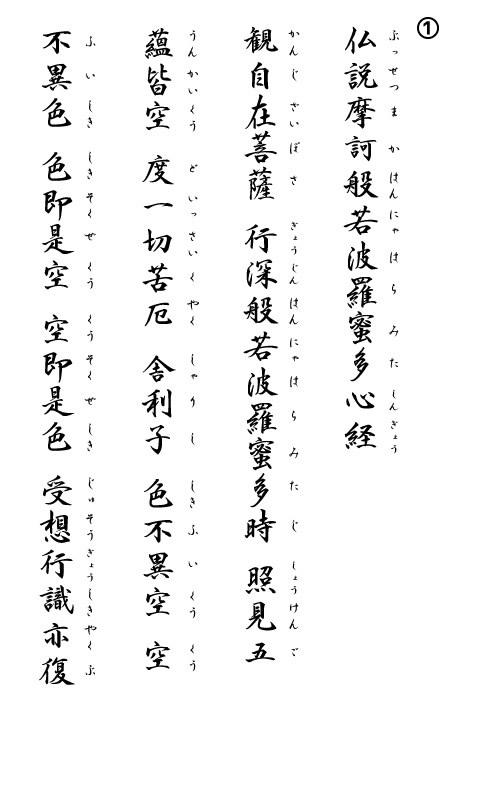 ①
仏説摩訶般若波羅蜜多心経
ぶっせつまかはんにゃはらみたしんぎょう
観自在菩薩 行深般若波羅蜜多時 照見五
かんじざいぼさ ぎょうじんはんにゃはらみたじ しょうけんご
蘊皆空 度一切苦厄 舎利子 色不異空 空
うんかいくう どいっさいくやく しゃりし しきふいくう くう
不異色 色即是空 空即是色 受想行識亦復
ふいしき しきそくぜくう くうそくぜしき じゅそうぎょうしきやくぶ